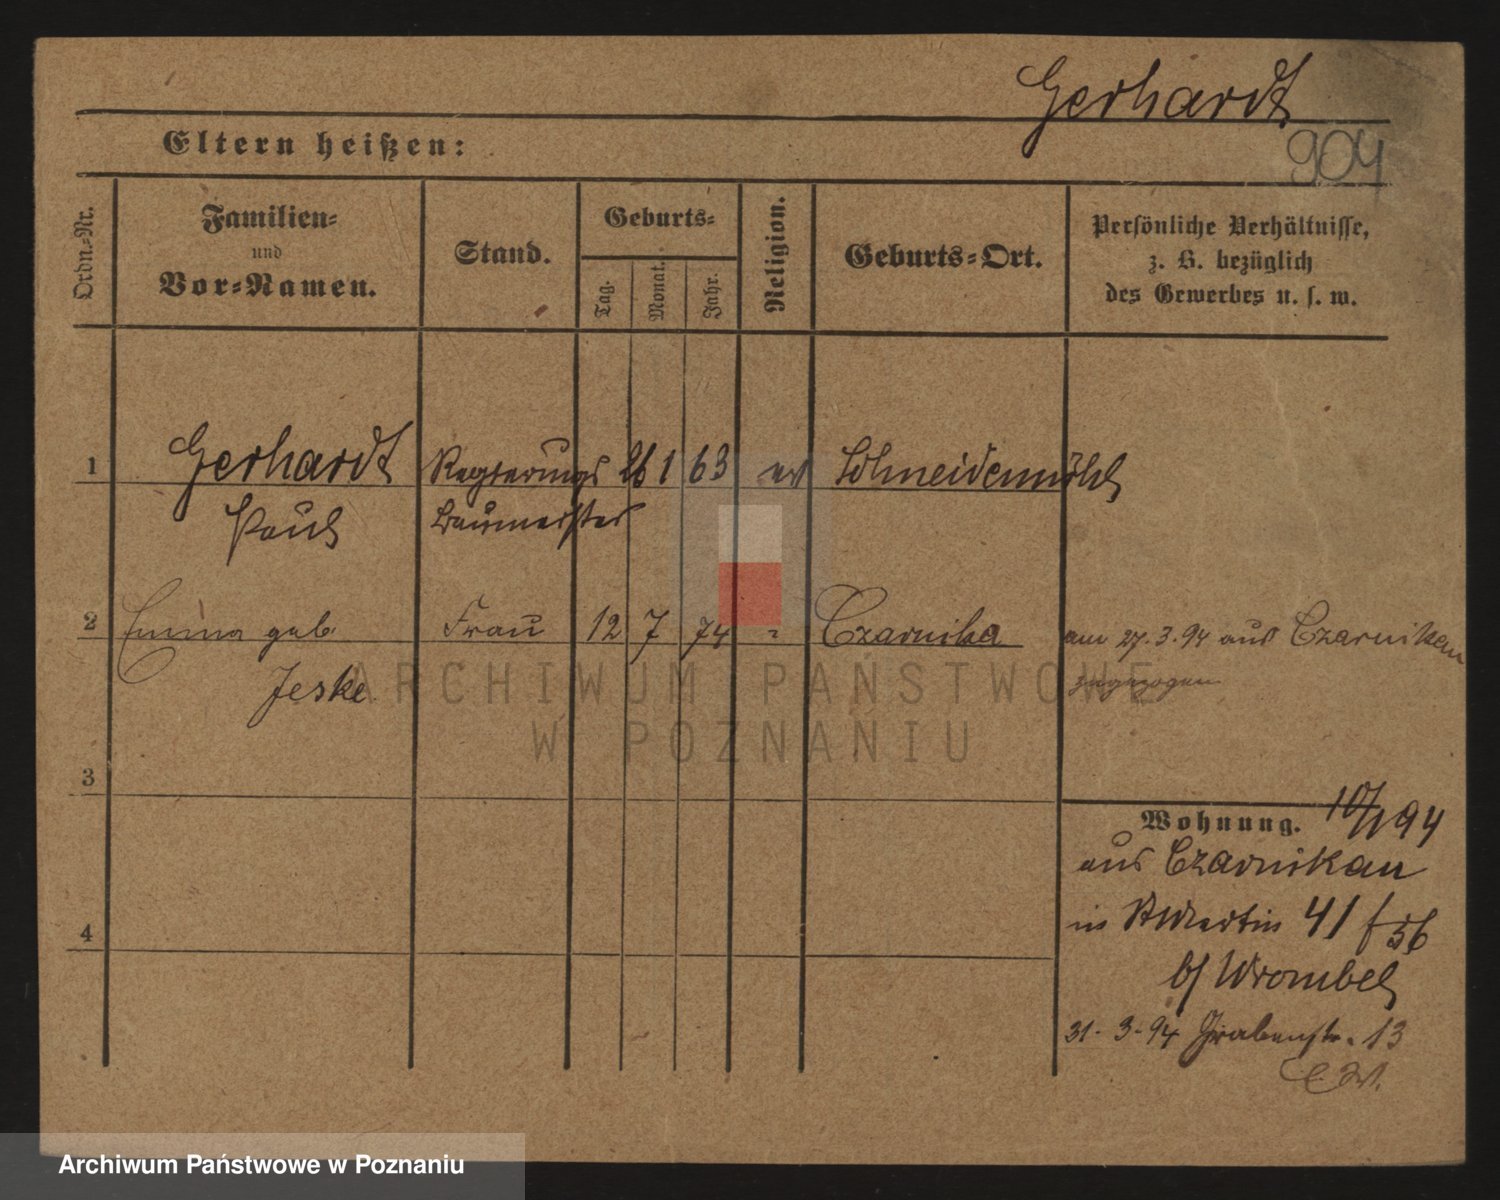 Gerhardt
904
Eltern heißen:
Ordn.=Nr.
Familien=
und
Vor=Namen.
Stand.
Geburts=
Tag.
Monat.
Jahr.
Religion.
Geburts=Ort.
Persönliche Verhältnisse,
z. B. bezüglich
des Gewerbes u. s. w.
1 Gerhardt Regierungs 26 1 63 ev Schneidemühl
Paul Baumeister
2 Emma geb. Frau 12 7 74 Czarnika am 27.3.94 aus Czarnikau
Jeske zugezogen
3
Wohnung. 10/1 94
aus Czarnikau
in St Martin 41 f 56
4
b/ Wrombel
31-3-94 Grabenstr. 13
ARCHIWUM PAŃSTWOWE
W POZNANIU
Archiwum Państwowe w Poznaniu